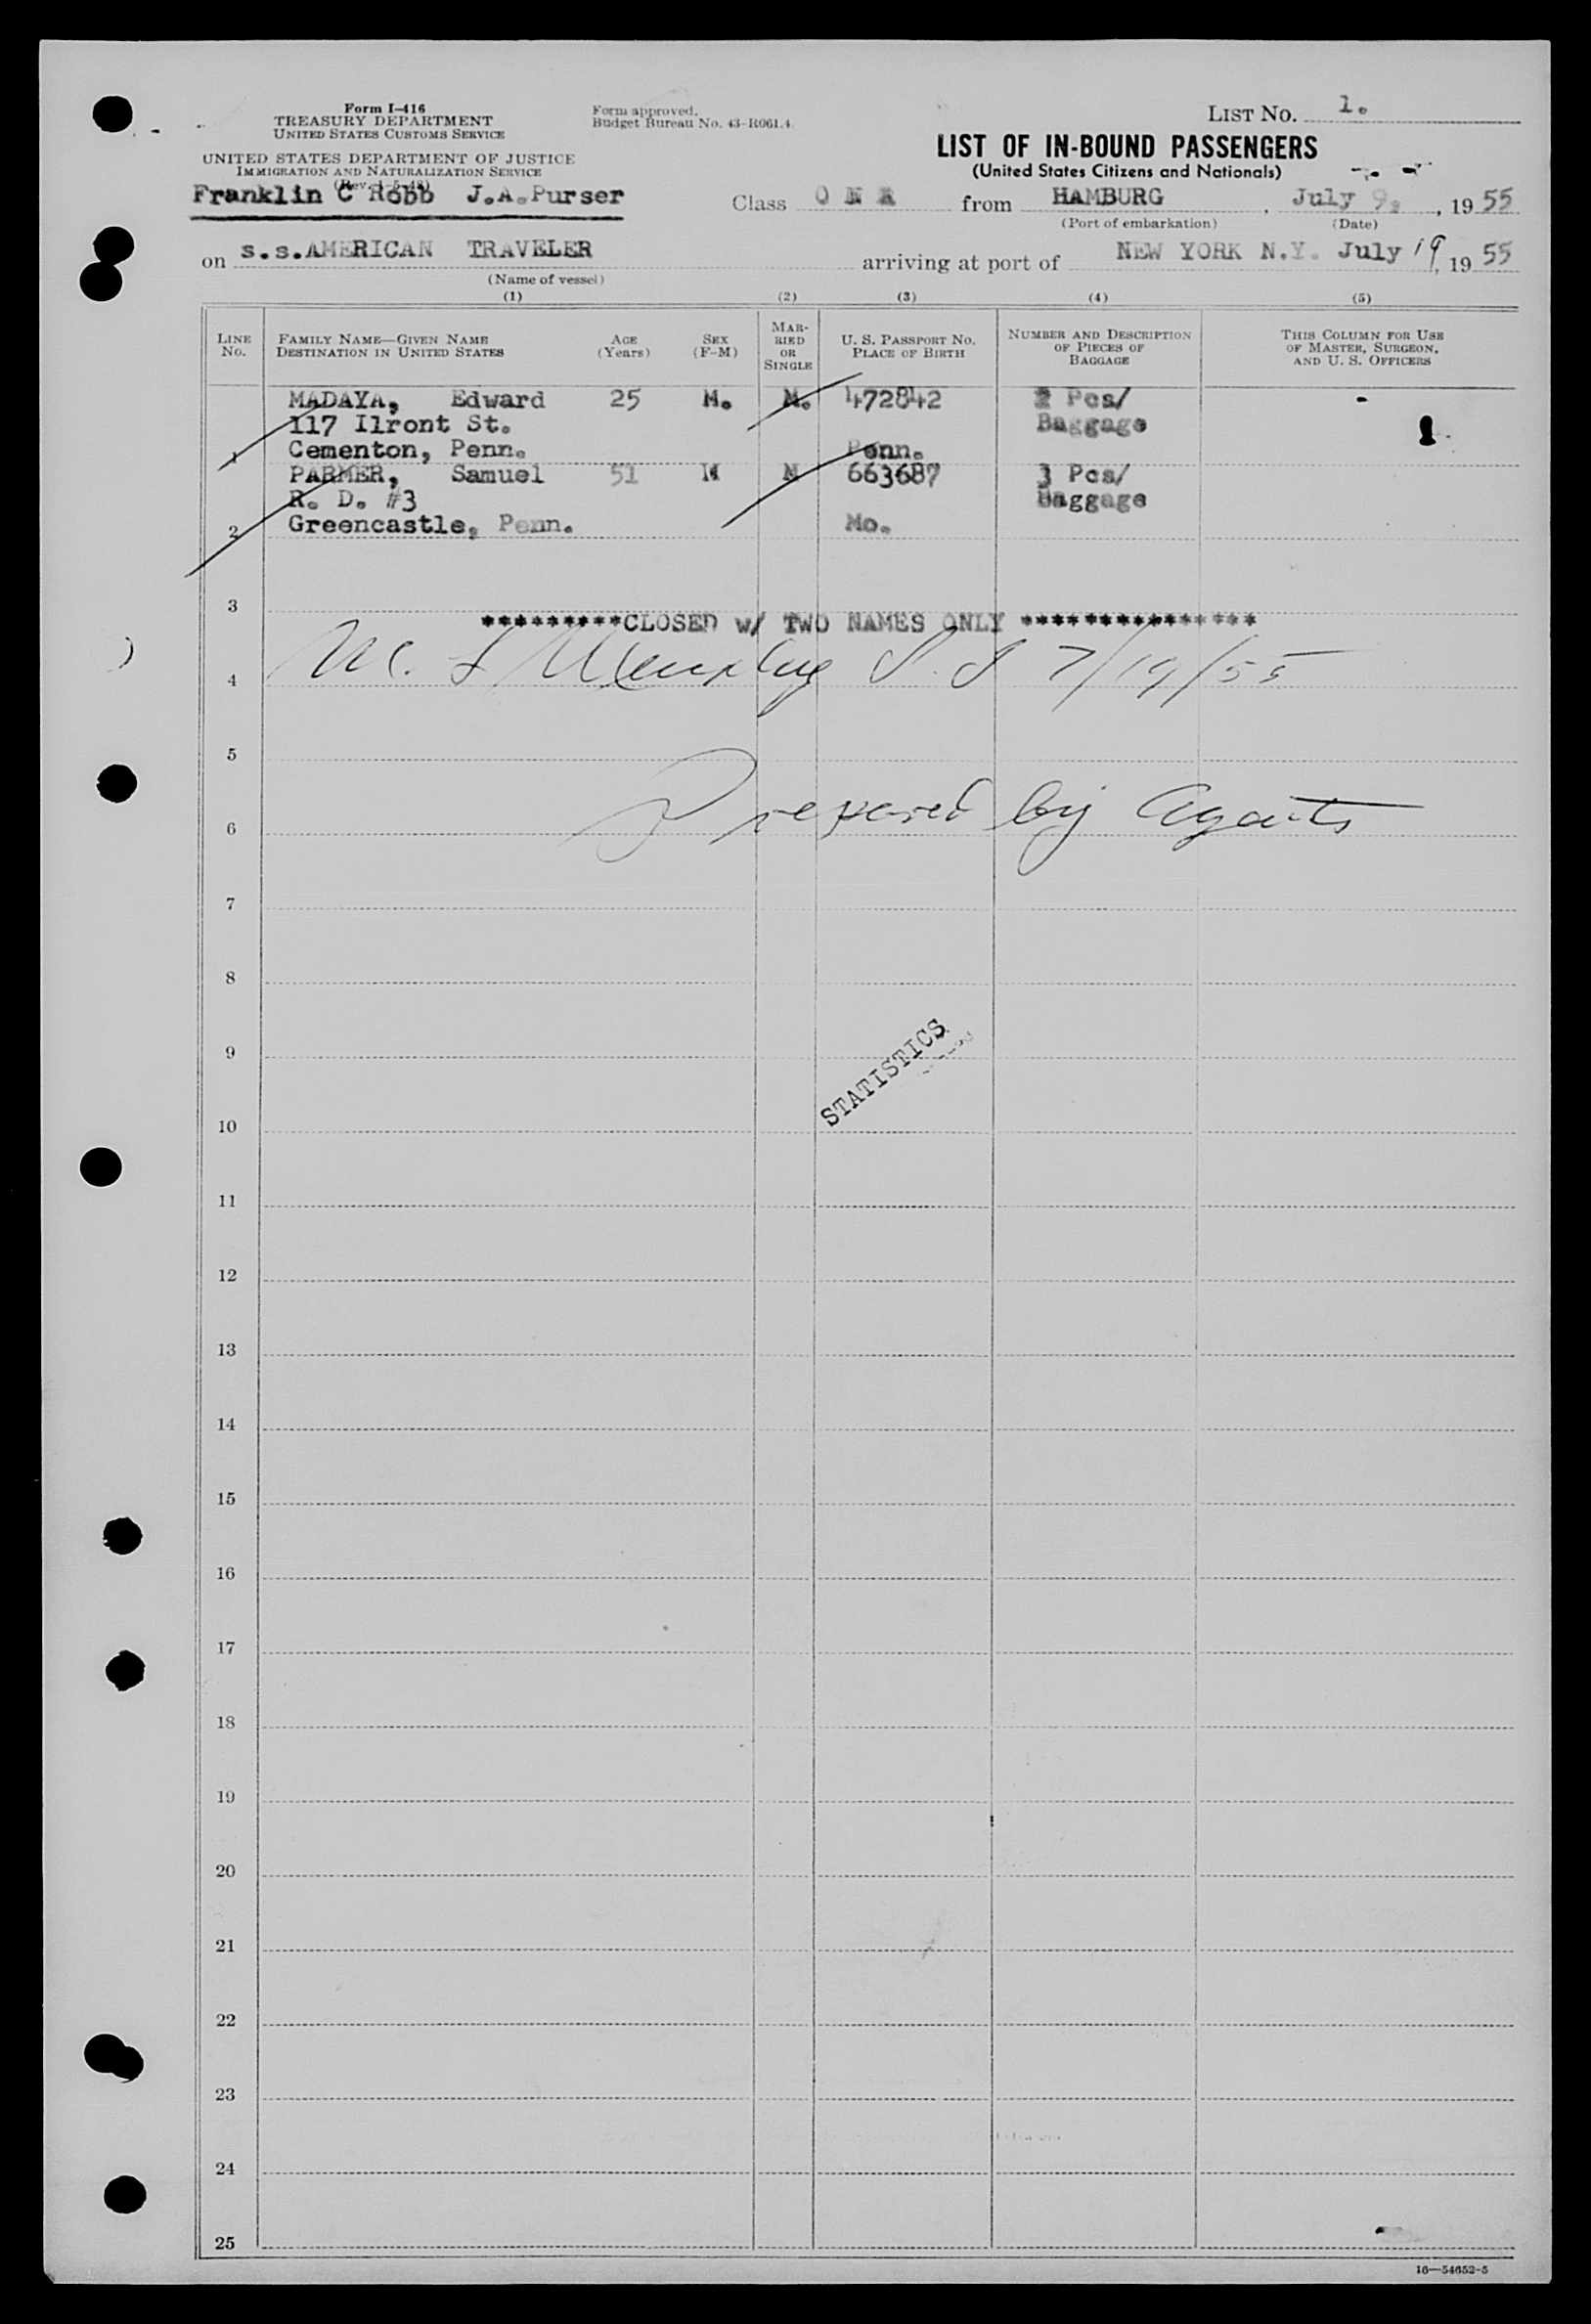 Form I-416
TREASURY DEPARTMENT
UNITED STATES CUSTOMS SERVICE
Form approved.
Budget Bureau No. 43-R061.4.
LIST NO. 1.
UNITED STATES DEPARTMENT OF JUSTICE
IMMIGRATION AND NATURALIZATION SERVICE
LIST OF IN-BOUND PASSENGERS
(United States Citizens and Nationals)
Franklin C Robb J.A.Purser
Class from HAMBURG, July 9, 1955
(Port of embarkation) (Date)
on s.s.AMERICAN TRAVELER arriving at port of NEW YORK N.Y. July 19, 1955
(Name of vessel)
(1) (2) (3) (4) (5)
LINE No. FAMILY NAME—GIVEN NAME DESTINATION IN UNITED STATES AGE (Years) SEX (F-M) MARRIED OR SINGLE U. S. PASSPORT NO. PLACE OF BIRTH NUMBER AND DESCRIPTION OF PIECES OF BAGGAGE THIS COLUMN FOR USE OF MASTER, SURGEON, AND U. S. OFFICERS
MADAYA, Edward 25 M. M. 472842 2 Pcs/
117 Ilront St. Baggage
1 Cementon, Penn. Penn.
PARMER, Samuel 51 M M 663687 3 Pcs/
R. D. #3 Baggage
2 Greencastle, Penn. Mo.
3
*********CLOSED w/ TWO NAMES ONLY ***************
4 7/19/55
5
6 Prepared by Agents
7
8
9
STATISTICS
10
11
12
13
14
15
16
17
18
19
20
21
22
23
24
25
16—54652-5